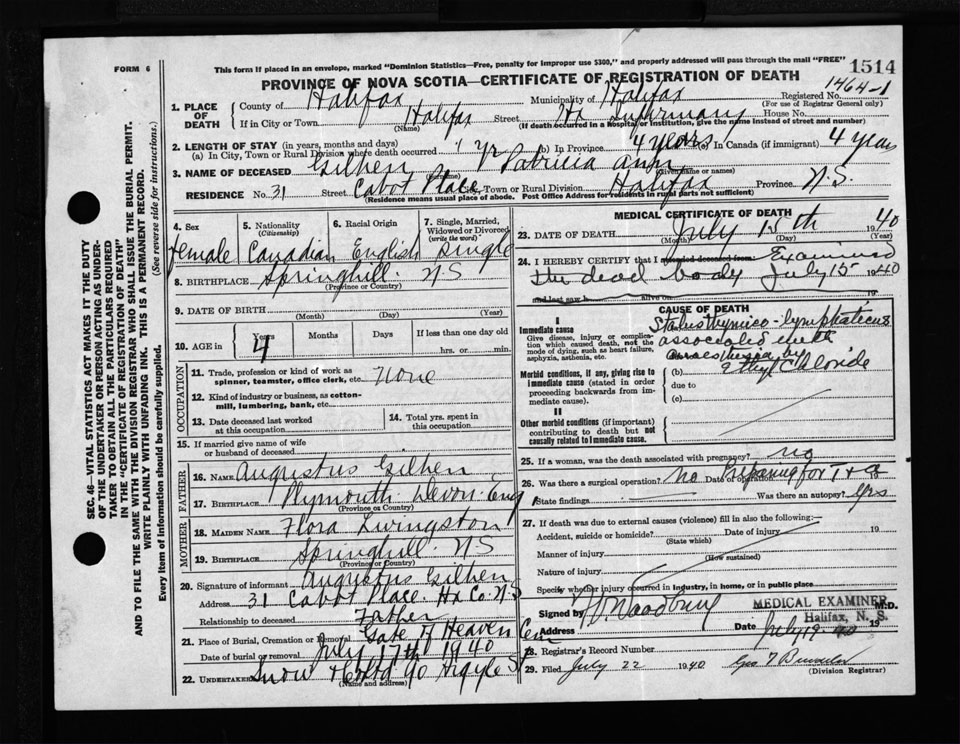 This form if placed in an envelope, marked "Dominion Statistics—Free, penalty for improper use $300," and properly addressed will pass through the mail "FREE"
FORM 6
1514
PROVINCE OF NOVA SCOTIA—CERTIFICATE OF REGISTRATION OF DEATH
1464-1
Registered No.
(For use of Registrar General only)
1. PLACE OF DEATH
County of Halifax Municipality of Halifax
If in City or Town Halifax Street Hx Infirmary House No.
(Name) (If death occurred in a hospital or institution, give the name instead of street and number)
2. LENGTH OF STAY (in years, months and days)
(a) In City, Town or Rural Division where death occurred 1 yr (b) In Province 4 years (c) In Canada (if immigrant) 4 years
3. NAME OF DECEASED Gilhen Patricia Ann
(Surname) (Given name or names)
RESIDENCE No. 31 Street Cabot Place City, Town or Rural Division Halifax Province N.S.
(Residence means usual place of abode. Post Office Address for residents in rural parts not sufficient)
4. Sex female
5. Nationality (Citizenship) Canadian
6. Racial Origin English
7. Single, Married, Widowed or Divorced (write the word) Single
8. BIRTHPLACE Springhill. N S
(Province or Country)
9. DATE OF BIRTH
(Month) (Day) (Year)
10. AGE in Years 4 Months Days If less than one day old
hrs. or min.
OCCUPATION
11. Trade, profession or kind of work as spinner, teamster, office clerk, etc. None
12. Kind of industry or business, as cotton-mill, lumbering, bank, etc.
13. Date deceased last worked at this occupation
14. Total yrs. spent in this occupation
15. If married give name of wife or husband of deceased
FATHER
16. NAME Augustus Gilhen
17. BIRTHPLACE Plymouth Devon Eng
(Province or Country)
MOTHER
18. MAIDEN NAME Flora Livingston
19. BIRTHPLACE Springhill. N S
(Province or Country)
20. Signature of informant Augustus Gilhen
Address 31 Cabot Place. Hx Co. N.S
Relationship to deceased Father
21. Place of Burial, Cremation or Removal Gate of Heaven Cem
Date of burial or removal July 17th 1940
22. UNDERTAKER Snow & Co Ltd 90 Argyle St
(Name and address)
MEDICAL CERTIFICATE OF DEATH
23. DATE OF DEATH July 15th 1940
(Month) (Day) (Year)
24. I HEREBY CERTIFY that I attended deceased from: Examined
the dead body July 15 1940
and last saw h alive on 19
CAUSE OF DEATH
I
Immediate cause
Give disease, injury or complication which caused death, not the mode of dying, such as heart failure, asphyxia, asthenia, etc.
Status thymico-lymphaticus
associated with
anaesthesia by
Ethyl Chloride
Morbid conditions, if any, giving rise to immediate cause (stated in order proceeding backwards from immediate cause).
(b)
due to
(c)
II
Other morbid conditions (if important) contributing to death but not causally related to immediate cause.
25. If a woman, was the death associated with pregnancy? no
26. Was there a surgical operation? No Date of operation Preparing for T & A
State findings Was there an autopsy? yes
27. If death was due to external causes (violence) fill in also the following:—
Accident, suicide or homicide? Date of injury 19
(State which)
Manner of injury
(How sustained)
Nature of injury
Specify whether injury occurred in industry, in home, or in public place
Signed by Woodbury M.D.
MEDICAL EXAMINER
Halifax, N. S.
Address Date July 19 1940
28. Registrar's Record Number
29. Filed July 22 1940 Geo
(Division Registrar)
SEC. 46—VITAL STATISTICS ACT MAKES IT THE DUTY
OF THE UNDERTAKER OR PERSON ACTING AS UNDER-
TAKER TO OBTAIN ALL THE PARTICULARS REQUIRED
IN THE "CERTIFICATE OF REGISTRATION OF DEATH"
AND TO FILE THE SAME WITH THE DIVISION REGISTRAR WHO SHALL ISSUE THE BURIAL PERMIT.
WRITE PLAINLY WITH UNFADING INK. THIS IS A PERMANENT RECORD.
Every item of information should be carefully supplied. (See reverse side for instructions.)